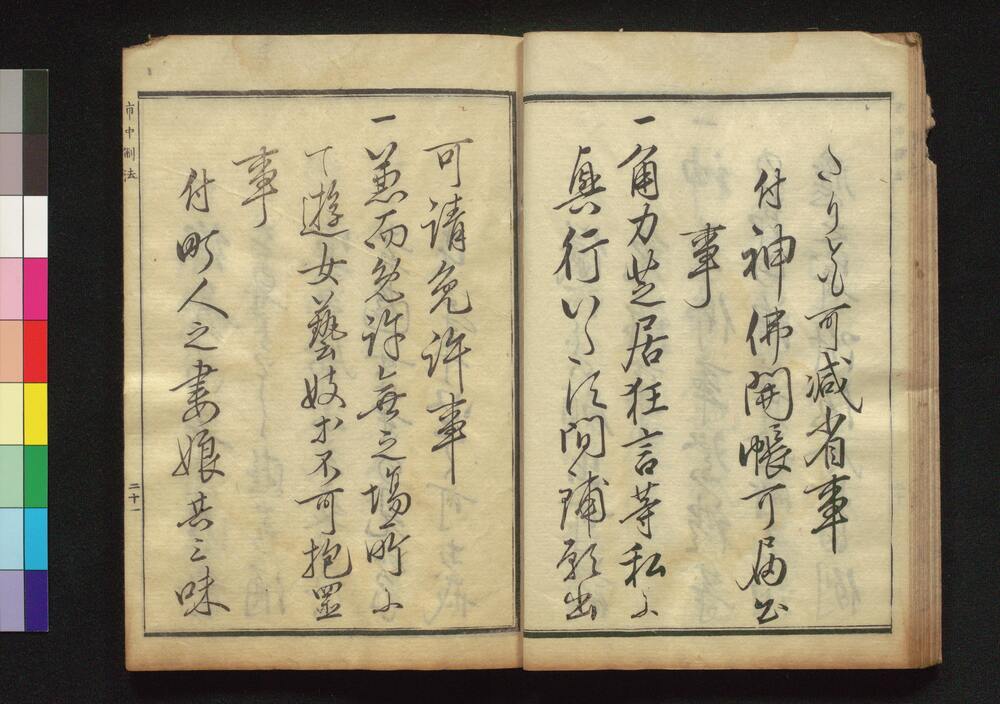 たりとも可減省事
付神佛開帳可届出
事
一角力芝居狂言等私に
興行いたす間鋪願出
可請免許事
一惣而免許無之場所に
て遊女藝妓等不可抱置
事
付町人之妻娘共三味
市中制法
二十一